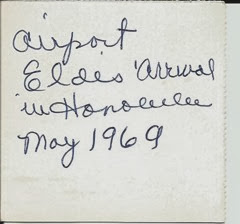 airport
Eldis 'Arrival
in Honolulu
May 1969